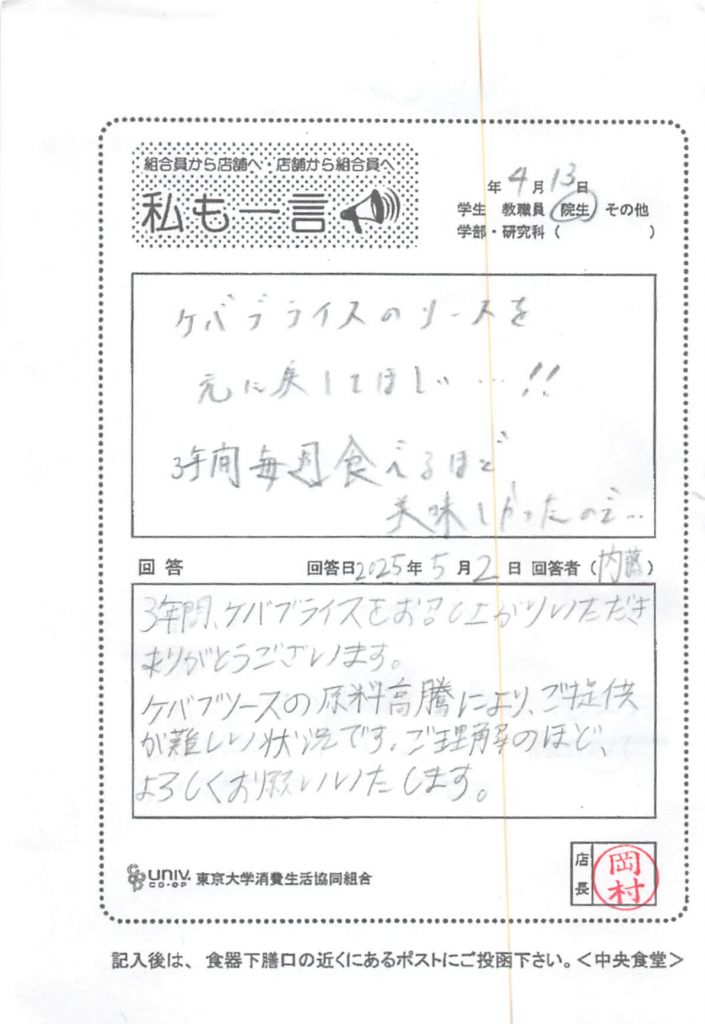 組合員から店舗へ・店舗から組合員へ
私も一言
年4月13日
学生 教職員 院生 その他
学部・研究科（ ）
ケバブライスのソースを
元に戻してほしい…!!
3年間毎週食べるほど
美味しかったのに…
回答 回答日2025年5月2日 回答者（内藤）
3年間、ケバブライスをお召し上がりいただき
ありがとうございます。
ケバブソースの原料高騰により、ご提供
が難しい状況です。ご理解のほど、
よろしくお願いいたします。
UNIV. CO-OP 東京大学消費生活協同組合
店長 岡村
記入後は、食器下膳口の近くにあるポストにご投函下さい。＜中央食堂＞